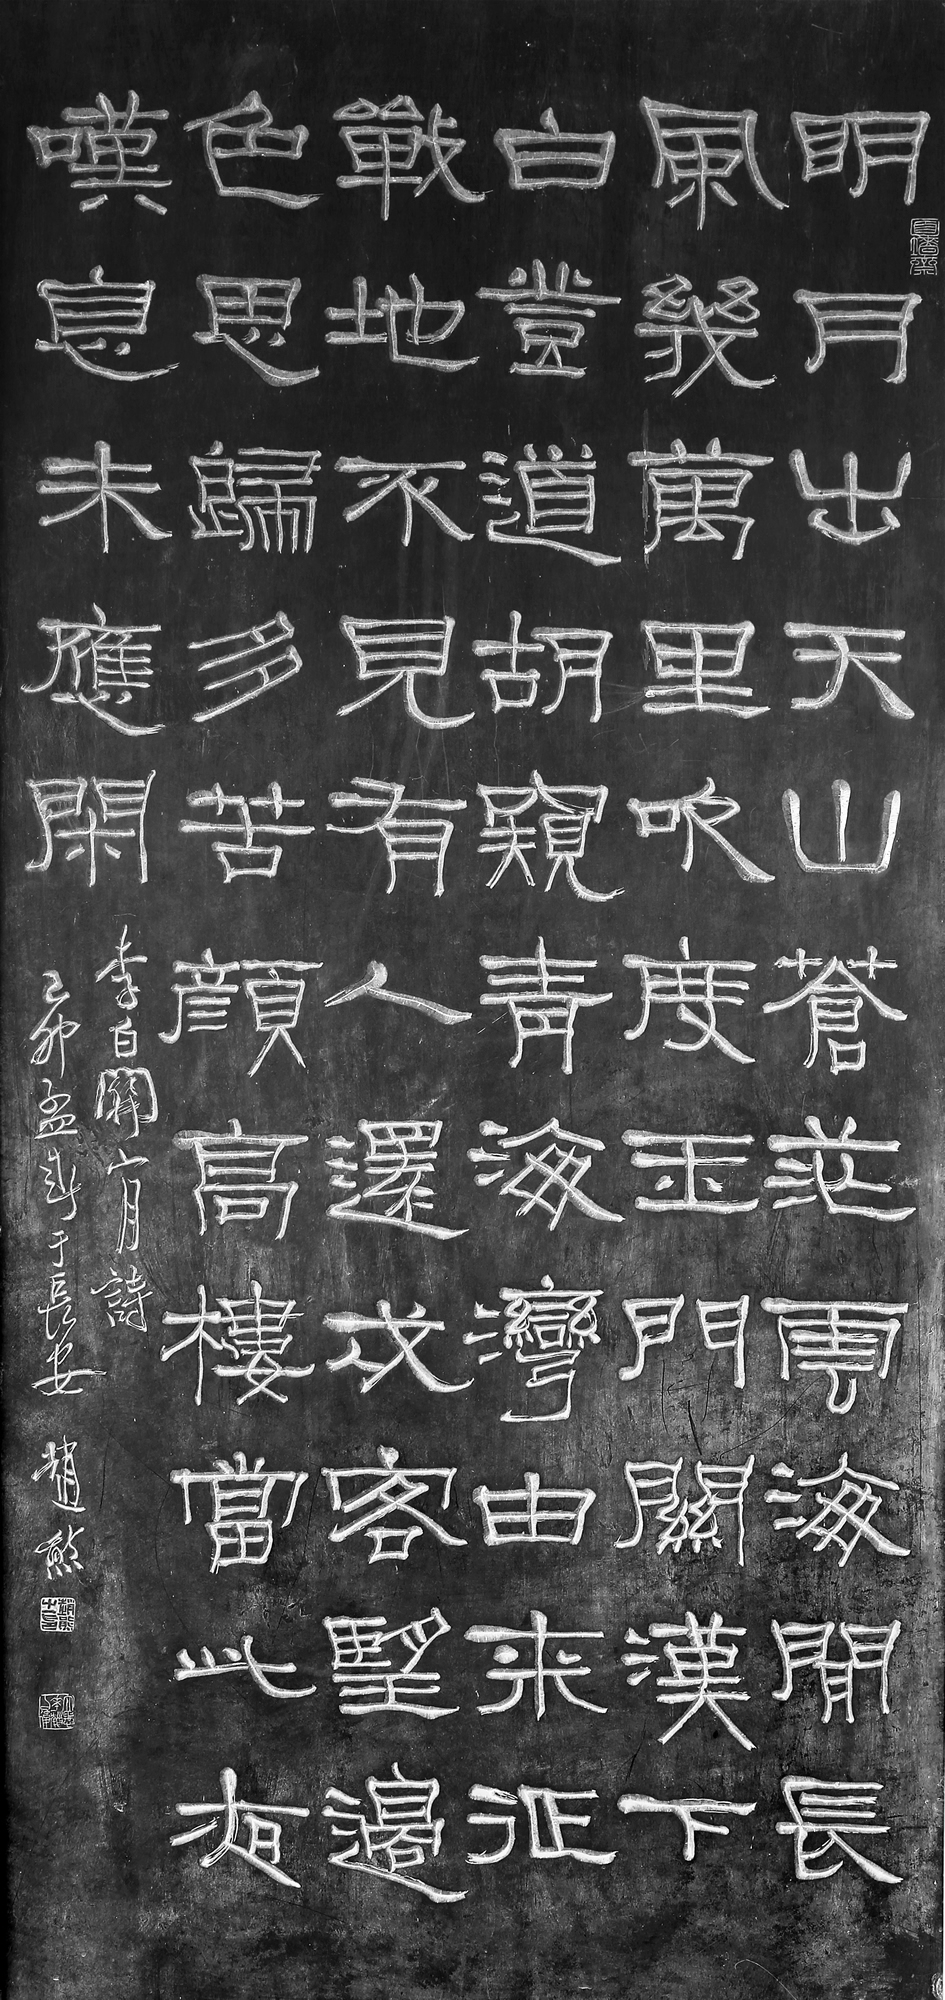 明月出天山蒼茫雲海閒長
風幾萬里吹度玉門關漢下
白登道胡窺青海灣由來征
戰地不見有人還戍客望邊
色思歸多苦顏高樓當此夜
嘆息未應閑
李白關山月詩
己卯孟于長安 趙熊